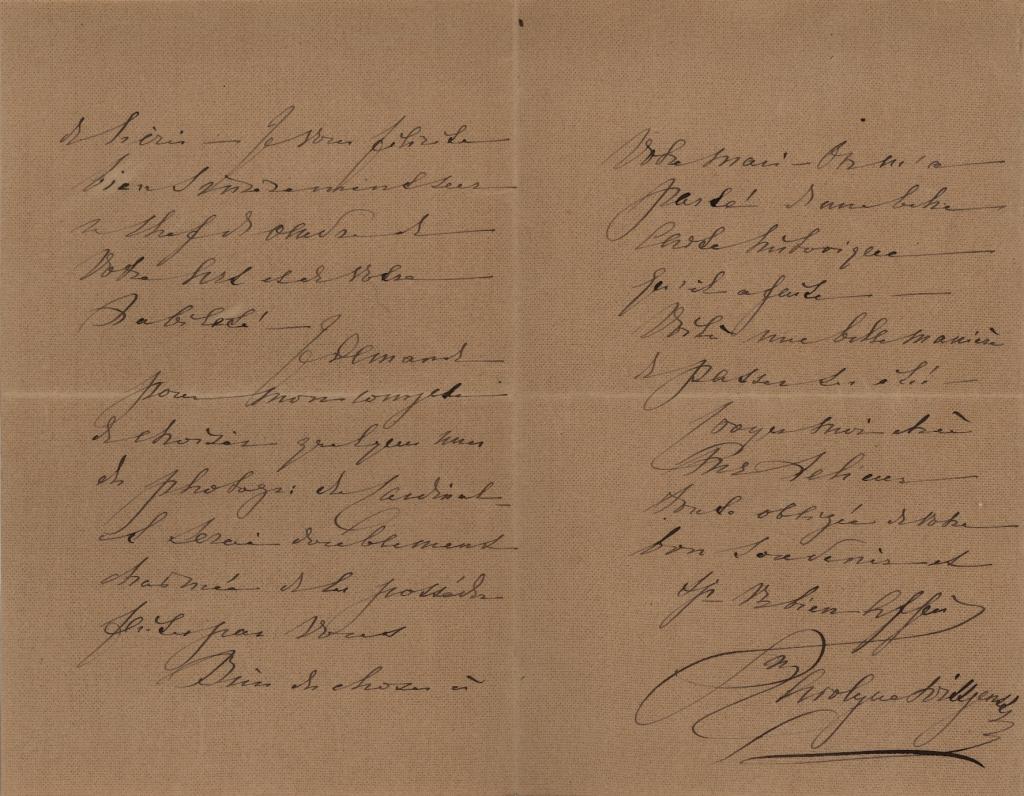 de Paris — Je vous félicite
bien sincèrement sur
ce chef d'œuvre de
Votre art et de votre
habileté! —
Je demande
pour mon compte
de choisir quelques unes
des photogr: du Cardinal
et serai doublement
charmée de les posséder
faites par Vous
Bien des choses à
Votre mari — On m'a
parlé d'une belle
Carte historique
qu'il a faite —
Voilà une belle manière
de passer les étés! —
Croyez moi chère
Me Helier
toute obligée de votre
bon souvenir et
Vtre bien affec
Psse Carolyne Wittgenstein